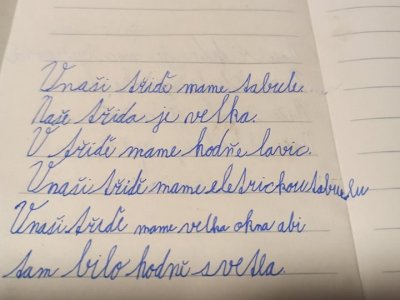 Vnaši třidě mame tabule.
Naše třida je velka.
V třidě mame hodňe lavic.
Vnaši třidě mame eletrickou tabuelu
Vnaši třidě mame velka okna abi
tam bilo hodně svetla.